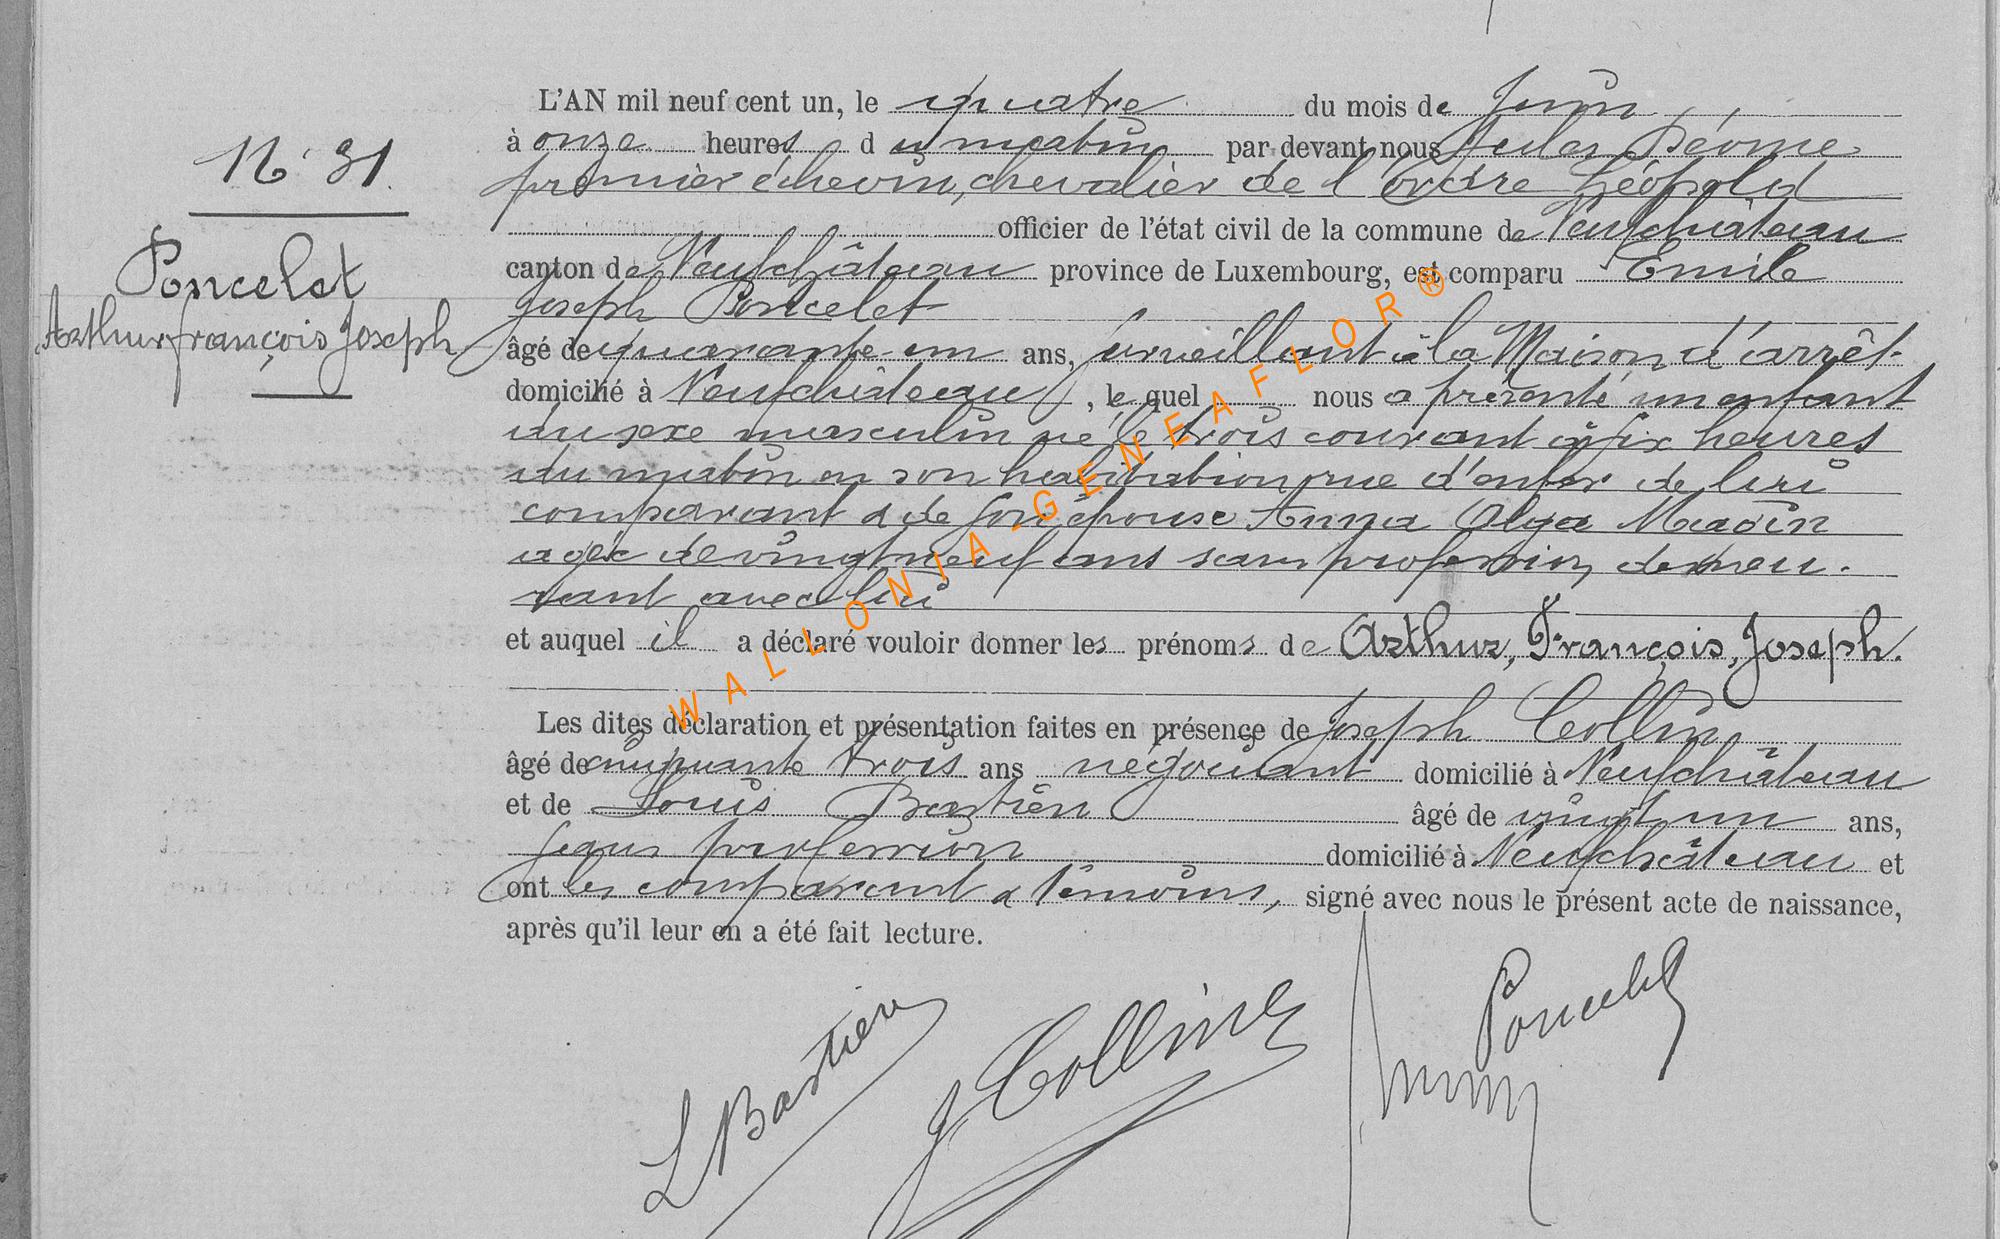 N° 31
Poncelet
Arthur François Joseph
L'AN mil neuf cent un, le quatre du mois de Juin
à onze heures du matin par devant nous Jules Déome
premier échevin, chevalier de l'ordre Léopold
officier de l'état civil de la commune de Neufchâteau
canton de Neufchâteau province de Luxembourg, est comparu Emile
Joseph Poncelet
âgé de quarante-un ans, surveillant à la Maison d'arrêt
domicilié à Neufchâteau, lequel nous a présenté un enfant
du sexe masculin né le trois courant à six heures
du matin en son habitation rue d'enfer de lui
comparant & de son épouse Anna Olga
agée de vingt neuf ans sans profession, demeu-
rant avec lui
et auquel il a déclaré vouloir donner les prénoms de Arthur, François, Joseph.
Les dites déclaration et présentation faites en présence de Joseph Collin
âgé de cinquante trois ans négociant domicilié à Neufchâteau
et de Louis Bastien âgé de vingt un ans,
sans profession domicilié à Neufchâteau et
ont les comparant & témoins, signé avec nous le présent acte de naissance,
après qu'il leur en a été fait lecture.
L Bastien
J Collin
Poncelet
WALLONIA-GENEAFLOR®